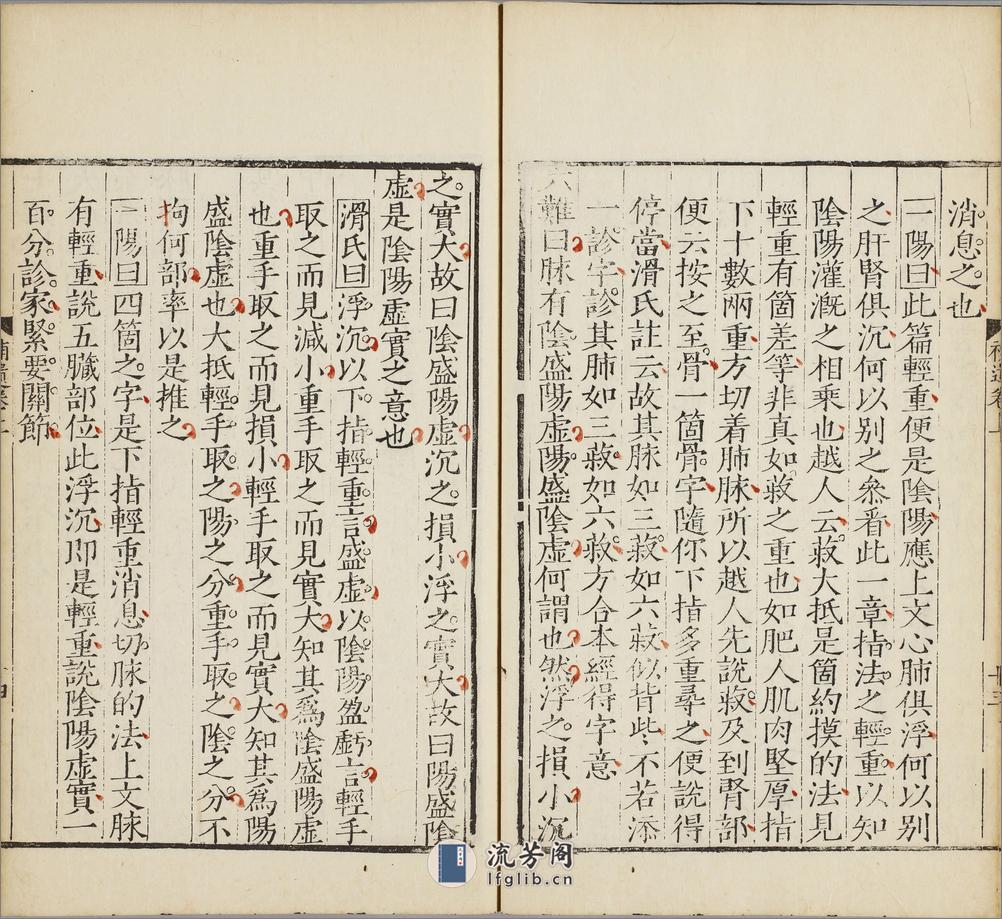 消息之也
一陽曰此篇輕重便是陰陽應上文心肺俱浮何以別
之肝腎俱沉何以別之叅看此一章指法之輕重以知
陰陽灌漑之相乘也越人云菽大抵是箇約摸的法見
輕重有箇差等非真如菽之重也如肥人肌肉堅厚指
下十數兩重方切着肺脉所以越人先說菽及到腎部
便云按之至骨一箇骨字隨你下指多重尋之便說得
停當滑氏註云故其脉如三菽如六菽似皆些不若添
一診字診其肺如三菽如六菽方合本經得字意
六難曰脉有陰盛陽虛陽盛陰虛何謂也然浮之損小沉
之實大故曰陰盛陽虛沉之損小浮之實大故曰陽盛陰
虛是陰陽虛實之意也
滑氏曰浮沉以下指輕重言盛虛以陰陽盈虧言輕手
取之而見減小重手取之而見實大知其爲陰盛陽虛
也重手取之而見損小輕手取之而見實大知其爲陽
盛陰虛也大抵輕手取之陽之分重手取之陰之分不
拘何部率以是推之
一陽曰四箇之字是下指輕重消息切脉的法上文脉
有輕重說五臟部位此浮沉即是輕重說陰陽虛實一
百分診家緊要關節
流芳阁
lfglib.cn